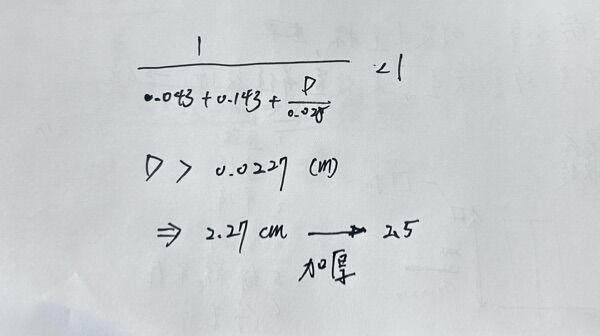 1 / (0.043 + 0.143 + D/0.028) < 1
D > 0.0227 (m)
⇒ 2.27 cm → 2.5
加厚